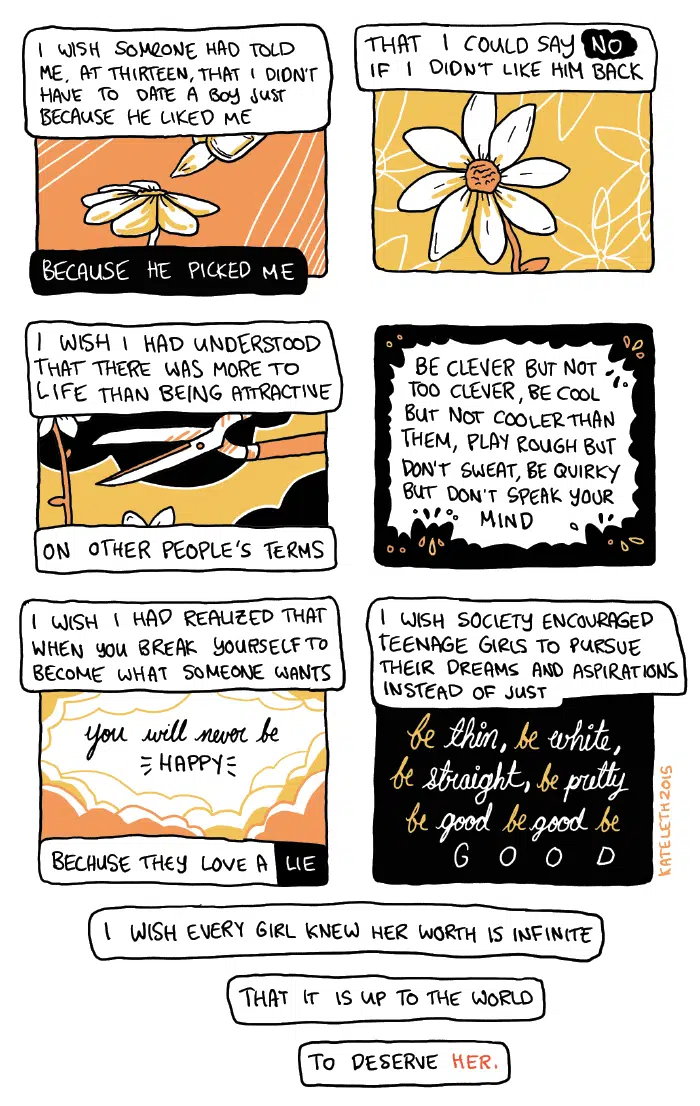 I WISH SOMEONE HAD TOLD
ME, AT THIRTEEN, THAT I DIDN'T
HAVE TO DATE A BOY JUST
BECAUSE HE LIKED ME
BECAUSE HE PICKED ME
THAT I COULD SAY NO
IF I DIDN'T LIKE HIM BACK
I WISH I HAD UNDERSTOOD
THAT THERE WAS MORE TO
LIFE THAN BEING ATTRACTIVE
ON OTHER PEOPLE'S TERMS
BE CLEVER BUT NOT
TOO CLEVER, BE COOL
BUT NOT COOLER THAN
THEM, PLAY ROUGH BUT
DON'T SWEAT, BE QUIRKY
BUT DON'T SPEAK YOUR
MIND
I WISH I HAD REALIZED THAT
WHEN YOU BREAK YOURSELF TO
BECOME WHAT SOMEONE WANTS
you will never be
HAPPY
BECAUSE THEY LOVE A LIE
I WISH SOCIETY ENCOURAGED
TEENAGE GIRLS TO PURSUE
THEIR DREAMS AND ASPIRATIONS
INSTEAD OF JUST
be thin, be white,
be straight, be pretty
be good be good be
GOOD
KATE LETH 2015
I WISH EVERY GIRL KNEW HER WORTH IS INFINITE
THAT IT IS UP TO THE WORLD
TO DESERVE HER.